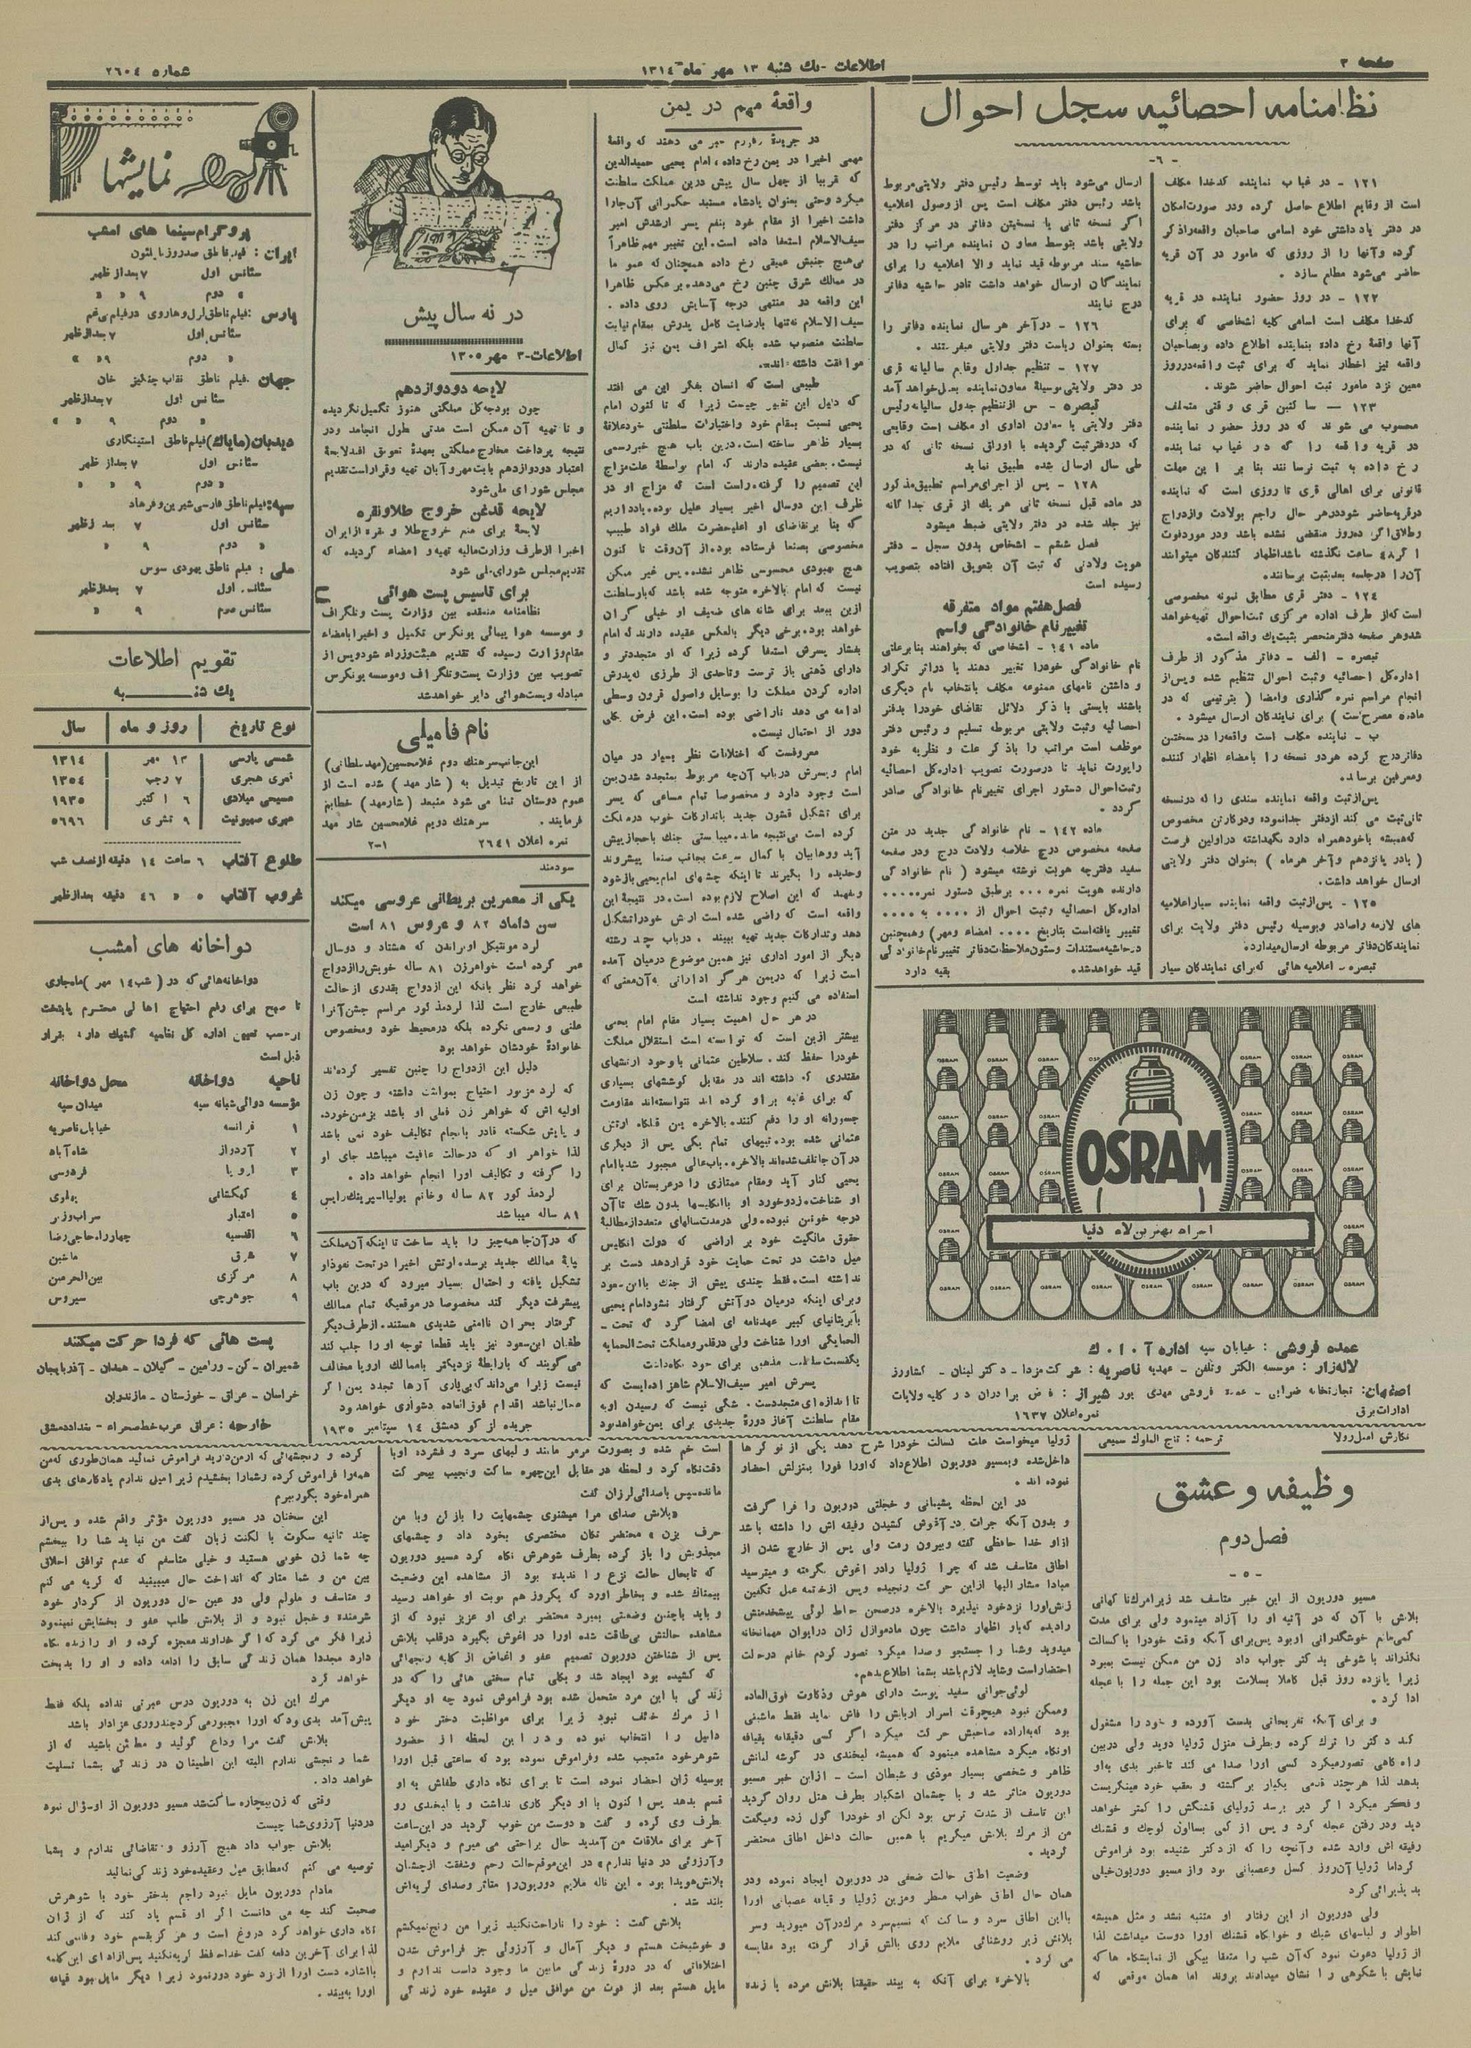 صفحه ۳
اطلاعات - یک شنبه ۱۳ مهر ماه ۱۳۱٤
شماره ۲٦۰٤
نظامنامه احصائیه سجل احوال
-٦-
۱۲۱ - در غیاب نماینده کدخدا مکلف
است از وقایع اطلاع حاصل کرده ودر صورت امکان
در دفتر یادداشتی خود اسامی صاحبان واقعه راذکر
کرده وآنها را از روزی که مامور در آن قریه
حاضر می‌شود مطلع سازد .
۱۲۲ - در روز حضور نماینده در قریه
کدخدا مکلف است اسامی کلیه اشخاصی که برای
آنها واقعهٔ رخ داده بنماینده اطلاع داده وبصاحبان
واقعه نیز اخطار نماید که برای ثبت واقعه در روز
معین نزد مامور ثبت احوال حاضر شوند .
۱۲۳ — ساکنین قری و قتی متخلف
محسوب می شوند که در روز حضور نماینده
در قریه واقعه را که در غیاب نماینده
رخ داده به ثبت نرسانند بنا بر این مهلت
قانونی برای اهالی قری تا روزی است که نماینده
درقریه حاضر شود در هر حال راجع بولادت وازدواج
وطلاق اگر ده روز منقضی نشده باشد ودر موردفوت
اگر ٤۸ ساعت نگذشته باشد اظهار کنندگان میتوانند
آن را درجلسه بعد بثبت برسانند.
۱۲٤ - دفتر قری مطابق نمونه مخصوصی
است که از طرف اداره مرکزی ثبت احوال تهیه خواهد
شد وهر صفحه دفتر منحصر بثبت یک واقعه است.
تبصره - الف - دفاتر مذکور از طرف
اداره کل احصائیه وثبت احوال تنظیم شده وپس از
انجام مراسم نمره گذاری وامضا ( بترتیبی که در
ماده مصرح است ) برای نمایندگان ارسال میشود .
ب - نماینده مکلف است واقعه را در سختین
دفاتر درج کرده هر دو نسخه را با امضاء اظهار کننده
ومعرفین برساند.
پس از ثبت واقعه نماینده سندی را که در نسخه
ثانی ثبت می کند از دفتر جدا نموده ودر کارتن مخصوص
که همیشه با خود همراه دارد نگهداشته در اولین فرصت
( یا در پانزدهم وآخر هر ماه ) بعنوان دفتر ولایتی
ارسال خواهد داشت.
۱۲٥ - پس از ثبت واقعه نماینده سیار اعلامیه
های لازمه را صادر وبوسیله رئیس دفتر ولایت برای
نمایندگان دفاتر مربوطه ارسال میدارد.
تبصره - اعلامیه هائی که برای نمایندگان سیار
ارسال می‌شود باید توسط رئیس دفتر ولایتی مربوط
باشد رئیس دفتر مکلف است پس از وصول اعلامیه
اگر نسخه ثانی یا نسختین دفاتر در مرکز دفتر
ولایتی باشد بتوسط معاون نماینده مراتب را در
حاشیه سند مربوطه قید نماید والا اعلامیه را برای
نمایندگان ارسال خواهد داشت تا در حاشیه دفاتر
درج نمایند
۱۲٦ - در آخر هر سال نماینده دفاتر را
بسته بعنوان ریاست دفتر ولایتی میفرستند .
۱۲۷ - تنظیم جداول وقایع سالیانه قری
در دفتر ولایتی بوسیلهٔ معاون نماینده بعمل خواهد آمد
تبصره - پس از تنظیم جدول سالیانه رئیس
دفتر ولایتی با معاون اداری او مکلف است وقایعی
که در دفتر ثبت گردیده با اوراق نسخه ثانی که در
طی سال ارسال شده تطبیق نماید
۱۲۸ - پس از اجرای مراسم تطبیق مذکور
در ماده قبل نسخه ثانی هر یک از قری جداگانه
نیز جلد شده در دفتر ولایتی ضبط میشود
فصل ششم - اشخاص بدون سجل - دفتر
هویت ولادتی که ثبت آن بتعویق افتاده بتصویب
رسیده است
فصل هفتم مواد متفرقه
تغییر نام خانوادگی واسم
ماده ۱٤۱ - اشخاصی که بخواهند بنا بر علتی
نام خانوادگی خود را تغییر دهند یا در اثر تکرار
و داشتن نامهای ممنوعه مکلف بانتخاب نام دیگری
باشند بایستی با ذکر دلائل تقاضای خود را بدفتر
احصائیه وثبت ولایتی مربوطه تسلیم و رئیس دفتر
موظف است مراتب را با ذکر علت و نظریه خود
راپورت نماید تا در صورت تصویب اداره کل احصائیه
وثبت احوال دستور اجرای تغییر نام خانوادگی صادر
گردد .
ماده ۱٤۲ - نام خانوادگی جدید در متن
صفحه مخصوص درج خلاصه ولادت درج ودر صفحه
سفید دفترچه هویت نوشته میشود ( نام خانوادگی
دارنده هویت نمره ... برطبق دستور نمره .....
اداره کل احصائیه وثبت احوال از .... به ....
تغییر یافته است بتاریخ .... امضاء ومهر) وهمچنین
در حاشیه مستندات وستون ملاحظات دفاتر تغییر نام خانوادگی
قید خواهد شد.   بقیه دارد
OSRAM
اسرام بهترین لامپ دنیا
عمده فروشی : خیابان سپه اداره آ . ا . ک
لاله زار: موسسه الکتر وتلفن - مهدیه ناصریه : شرکت مزدا - دکتر لبنان - کشاورز
اصفهان: تجارتخانه ضرابی - عمده فروشی مهدی پور شیراز : فیض برادران در کلیه ولایات
ادارات برق   نمره اعلان ۱٦۳۷
واقعهٔ مهم در یمن
مهمی اخیرا در یمن رخ داده ، امام یحیی حمیدالدین
که قریبا از چهل سال پیش درین مملکت سلطنت
میکرد وحتی بعنوان پادشاه مستبد حکمرانی آن جا را
داشت اخیرا از مقام خود بنفع پسر ارشدش امیر
سیف الاسلام استعفا داده است . این تغییر مهم ظاهراً
بی هیچ جنبش عمیقی رخ داده همچنان که عمو ما
در ممالک شرق چنین رخ می‌دهد. بر عکس ظاهرا
این واقعه در منتهی درجه آسایش روی داده .
سیف الاسلام نه تنها با رضایت کامل پدرش بمقام نیابت
سلطنت منصوب شده بلکه اشراف یمن نیز کمال
موافقت داشته اند.
طبیعی است که انسان بفکر این می افتد
که دلیل این تغییر چیست زیرا که تا کنون امام
یحیی نسبت بمقام خود واختیارات سلطنتی خود علاقهٔ
بسیار ظاهر ساخته است. درین باب هیچ خبر رسمی
نیست. بعضی عقیده دارند که امام بواسطهٔ علت مزاج
این تصمیم را گرفته. راست است که مزاج او در
ظرف این دو سال اخیر بسیار علیل بوده. یاد داریم
که بنا بر تقاضای او اعلیحضرت ملک فواد طبیب
مخصوصی بصنعا فرستاده بود. از آن وقت تا کنون
هیچ بهبودی محسوسی ظاهر نشده . پس غیر ممکن
نیست که امام بالاخره متوجه شده باشد که بار سلطنت
ازین ببعد برای شانه های ضعیف او خیلی گران
خواهد بود. برخی دیگر بالعکس عقیده دارند که امام
بفشار پسرش استعفا کرده زیرا که او متجددتر و
دارای ذهنی باز ترست وتاحدی از طرزی که پدرش
اداره کردن مملکت را بوسایل واصول قرون وسطی
ادامه می دهد ناراضی بوده است. این فرض بکلی
دور از احتمال نیست.
معروفست که اختلافات نظر بسیار در میان
امام وپسرش در باب آن چه مربوط بمتجدد شدن یمن
است وجود دارد و مخصوصا تمام مساعی که پسر
برای تشکیل قشون جدید با تدارکات خوب در مملکت
کرده است بی نتیجه مانده. میبایستی جنگ با حجاز پیش
آید ووهابیان با کمال سرعت بجانب صنعا پیشروند
وحدیده را بگیرند تا اینکه چشمهای امام یحیی باز شود
وبفهمد که این اصلاح لازم بوده است. در نتیجهٔ این
واقعه است که راضی شده است ارتش خود را تشکیل
دهد وتدارکات جدید تهیه ببیند . در باب چند رشته
دیگر از امور اداری نیز همین موضوع در میان آمده
است زیرا که در یمن هرگز اداراتی به آن معنی که
استفاده می کنیم وجود نداشته است
در هر حال اهمیت بسیار مقام امام یحیی
بیشتر ازین است که توانسته است استقلال مملکت
خود را حفظ کند . سلاطین عثمانی با وجود ارتشهای
مقتدری که داشته اند در مقابل کوششهای بسیاری
که برای غلبه بر او کرده اند نتوانسته‌اند مقاومت
جسورانه او را دفع کنند. بالاخره یمن قتلگاه ارتش
عثمانی شده بود. تیپهای تمام یکی پس از دیگری
در آن جا تلف شده اند بالاخره. باب عالی مجبور شد با امام
یحیی کنار آید ومقام ممتازی را در عربستان برای
او شناخت. زد وخورد او با انگلیسها بدون شک تا آن
درجه خونین نبوده. ولی در مدت سالهای متعدد از مطالبهٔ
حقوق مالکیت خود بر اراضی که دولت انگلیس
میل داشت در تحت حمایت خود قرار دهد دست بر
نداشته است. فقط چندی پیش از جنگ با ابن سعود
وبرای اینکه در میان دو آتش گرفتار نشود امام یحیی
با بریتانیای کبیر عهدنامه ای امضا کرد که تحت -
الحمایگی او را شناخت ولی در قلمرو مملکت تحت الحمایه
یکقسمت سلطنت مذهبی برای خود نگاه داشت
پسرش امیر سیف الاسلام شاهزاده ایست که
تا اندازه ای متجددست . شکی نیست که رسیدن او به
مقام سلطنت آغاز دورهٔ جدیدی برای یمن خواهد بود
در نه سال پیش
اطلاعات- ۳ مهر ۱۳۰٥
لایحه دو دوازدهم
چون بودجه کل مملکتی هنوز تکمیل نگردیده
و تا تهیه آن ممکن است مدتی طول انجامد ودر
نتیجه پرداخت مخارج مملکتی بعهدهٔ تعویق افتد لایحهٔ
اعتبار دو دوازدهم بابت مهر و آبان تهیه وقرار است تقدیم
مجلس شورای ملی شود
لایحه قدغن خروج طلا ونقره
لایحهٔ برای منع خروج طلا و نقره از ایران
اخیرا از طرف وزارت مالیه تهیه و امضاء گردیده که
تقدیم مجلس شورای ملی شود
برای تاسیس پست هوائی
نظامنامه منعقده بین وزارت پست وتلگراف
و موسسه هوا پیمائی یونکرس تکمیل و اخیرا بامضاء
مقام وزارت رسیده که تقدیم هیئت وزراء شود وپس از
تصویب بین وزارت پست وتلگراف وموسسه یونکرس
مبادله وپست هوائی دایر خواهد شد
نام فامیلی
این جانب سرهنگ دوم غلامحسین (مهد سلطانی)
از این تاریخ تبدیل به ( شار مهد ) شده است از
عموم دوستان تمنا می شود منبعد (شارمهد) خطابم
فرمایند .   سرهنگ دویم غلامحسین شار مهد
نمره اعلان ۲٦٤۱   ۲-۱
سودمند
یکی از معمرین بریطانی عروسی میکند
سن داماد ۸۲ و عروس ۸۱ است
لرد مونتیگل اوبراندن که هشتاد و دو سال
عمر کرده است خواهر زن ۸۱ ساله خویش را ازدواج
خواهد کرد نظر بانکه این ازدواج بقدری از حالت
طبیعی خارج است لذا لرد مذکور مراسم جشن آنرا
علنی و رسمی نکرده بلکه در محیط خود ومخصوص
خانوادهٔ خودشان خواهد بود
دلیل این ازدواج را چنین تفسیر کرده‌اند
که لرد مزبور احتیاج بمواظبت داشته و چون زن
اولیه اش که خواهر زن فعلی او باشد بزمین خورد.
و پایش شکسته قادر بانجام تکالیف خود نمی باشد
لذا خواهر او که در حالت عافیت میباشد جای او
را گرفته و تکالیف او را انجام خواهد داد .
لرد مذکور ۸۲ ساله وخانم یولیا اسپرینگ رایس
۸۱ ساله میباشد
که در آن جا همه چیز را باید ساخت تا اینکه آن مملکت
بپایهٔ ممالک جدید برسد. ارتش اخیرا در تحت نفوذ او
تشکیل یافته و احتمال بسیار میرود که درین باب
پیشرفت دیگر کند مخصوصا در موقعیکه تمام ممالک
گرفتار بحران ناامنی شدیدی هستند. از طرف دیگر
طغیان ابن سعود نیز باید قطعا توجه او را جلب کند
می‌گویند که با رابطهٔ نزدیکتر با ممالک اروپا مخالف
نیست زیرا می‌داند که بی‌یاری آن‌ها تجدد یمن اگر
محال نباشد اقدام فوق العاده دشواری خواهد بود
جریده اِر کو دمشق ۱٤ سپتامبر ۱۹۳٥
نمایشها
پروگرام سینما های امشب
ایران :
سئانس اول   ۷ بعد از ظهر
» دوم   ۹ » »
پارس : فیلم ناطق لرل و هاردی در فیلم بی غم
سئانس اول   ۷ بعد از ظهر
» دوم   ۹ » »
جهان : فیلم ناطق نقاب چنگیز خان
سئانس اول   ۷ بعد از ظهر
» دوم   ۹ » »
دیدبان (مایاک) فیلم ناطق استینگاری
سئانس اول   ۷ بعد از ظهر
» دوم   ۹ » »
سپه: فیلم ناطق فارسی شیرین و فرهاد
سئانس اول   ۷ بعد از ظهر
» دوم   ۹ » »
ملی : فیلم ناطق یهودی سوس
سئانس اول   ۷ بعد از ظهر
سئانس دوم   ۹ » »
تقویم اطلاعات
یک شنبه
نوع تاریخ   روز و ماه   سال
شمسی پارسی   ۱۳ مهر   ۱۳۱٤
قمری هجری   ۷ رجب   ۱۳٥٤
مسیحی میلادی   ٦ اکتبر   ۱۹۳٥
عبری صهیونیت   ۹ تشری   ٥٦۹٦
طلوع آفتاب ٦ ساعت ۱٤ دقیقه از نصف شب
غروب آفتاب ٥ » ٤٦ دقیقه بعد از ظهر
دواخانه های امشب
دواخانه هائی که در ( شب ۱٤ مهر ) ماه جاری
تا صبح برای رفع احتیاج اهالی محترم پایتخت
بر حسب تعیین اداره کل نظمیه کشیک دارند بقرار
ذیل است
ناحیه   دواخانه   محل دواخانه
مؤسسه دوائی شبانه سپه   میدان سپه
۱   فرانسه   خیابان ناصریه
۲   آردواز   شاه آباد
۳   اروپا   فردوسی
٤   کهکشانی   پهلوی
٥   اعتبار   سراب وزیر
٦   اقدسیه   چهار راه حاجی رضا
۷   شرق   ماشین
۸   مرکزی   بین الحرمین
۹   جوهرچی   سیروس
پست هائی که فردا حرکت میکنند
شمیران - کن - ورامین - گیلان - همدان - آذربایجان
خراسان - عراق - خوزستان - مازندران
خارجه : عراق عرب خط صحراء - بغداد دمشق
نگارش امیل زولا   ترجمه : تاج الملوک سمیعی
وظیفه و عشق
فصل دوم
-٥-
مسیو دوریون از این خبر متاسف شد زیرا مرگ ناگهانی
بلانش با آن که در آتیه او را آزاد مینمود ولی برای مدت
کمی مانع خوشگذرانی او بود پس برای آنکه وقت خود را با کسالت
نگذراند با شوخی بدکتر جواب داد زن من ممکن نیست بمیرد
زیرا پانزده روز قبل کاملا بسلامت بود این جمله را با عجله
ادا کرد .
و برای آنکه تفریحاتی بدست آورده و خود را مشغول
کند دکتر را ترک کرده وبطرف منزل ژولیا دوید ولی در بین
راه گاهی تصور میکرد کسی او را صدا می کند تا خبر بدی به او
بدهد لذا هر چند قدمی یکبار برگشته و بعقب خود مینگریست
و فکر میکرد اگر دیر برسد ژولیای قشنگش را کمتر خواهد
دید ودر رفتن عجله کرد و پس از کمی بسالون کوچک و قشنگ
رفیقه اش وارد شده و آنچه را که از دکتر شنیده بود فراموش
کرد اما ژولیا آن روز کسل وعصبانی بود واز مسیو دوریون خیلی
بد پذیرائی کرد
ولی دوریون از این رفتار او متنبه نشد و مثل همیشه
اطوار و لباسهای شیک و خوابگاه قشنگ او را دوست میداشت لذا
از ژولیا دعوت نمود که آن شب را متفقا بیکی از نمایشگاه ها که
نمایش باشکوهی را نشان میدادند بروند اما همان موقعی که
ژولیا میخواست علت کسالت خود را شرح دهد یکی از نوکرها
داخل شده وبمسیو دوریون اطلاع داد که او را فورا بمنزلش احضار
نموده اند .
در این لحظه پشیمانی و خجلتی دوریون را فرا گرفت
و بدون آنکه جرات در آغوش کشیدن رفیقه اش را داشته باشد
از او خدا حافظی گفته وبیرون رفت ولی پس از خارج شدن از
اطاق متاسف شد که چرا ژولیا را در آغوش نگرفته و میترسید
مبادا مشار الیها از این حرکت رنجیده وپس از خاتمه عمل تکفین
زنش او را نزد خود نپذیرد بالاخره در صحن حیاط لوئی پیشخدمتش
را دیده که باو اظهار داشت چون مادموازل ژان در ایوان مهمانخانه
میدوید وشما را جستجو و صدا میکرد تصور کردم خانم در حالت
احتضار است وشاید لازم باشد بشما اطلاع بدهم.
لوئی جوانی سفید پوست دارای هوش وذکاوت فوق العاده
وممکن نبود هیچوقت اسرار اربابش را فاش نماید فقط ماشینی
بود که به اراده صاحبش حرکت میکرد اگر کسی دقیقانه بقیافه
او نگاه میکرد مشاهده مینمود که همیشه لبخندی در گوشه لبانش
ظاهر و شخصی بسیار موذی و شیطان است - از این خبر مسیو
دوریون متاثر شد و با چشمان اشکبار بطرف هتل روان گردید
این تاسف از شدت ترس بود لکن او خود را گول زده ومیگفت
من از مرگ بلانش میگریم با همین حالت داخل اطاق محتضر
گردید .
وضعیت اطاق حالت ضعفی در دوریون ایجاد نموده ودر
همان حال اطاق خواب معطر ومزین ژولیا و قیافه عصبانی او را
با این اطاق سرد و ساکت که نسیم سرد مرگ در آن میوزید وسر
بلانش زیر روشنائی ملایم روی بالش قرار گرفته بود مقایسه
می کرد .
بالاخره برای آنکه به بیند حقیقتا بلانش مرده یا زنده
است خم شده و بصورت مرمر مانند و لبهای سرد و فشرده او با
دقت نگاه کرد و لحظه در مقابل این چهره ساکت ونجیب بیحرکت
مانده سپس با صدائی لرزان گفت
«بلانش صدای مرا میشنوی چشمهایت را باز کن وبا من
حرف بزن» محتضر تکان مختصری بخود داد و چشمهای
مجذوبش را باز کرده بطرف شوهرش نگاه کرد مسیو دوریون
که تابحال حالت نزع را ندیده بود از مشاهده این وضعیت
بیمناک شده و بخاطر آورد که یکروز هم نوبت او خواهد رسید
و باید با چنین وضعیتی بمیرد محتضر برای او عزیز نبود که از
مشاهده حالتش بی طاقت شده او را در آغوش بگیرد در قلب بلانش
پس از شناختن دوریون تصمیم عفو و اغماض از کلیه رنجهائی
که کشیده بود ایجاد شد و بکلی تمام سختی هائی را که در
زندگی با این مرد متحمل شده بود فراموش نمود چه او دیگر
از مرگ خائف نبود زیرا برای مواظبت دختر خود
دانیل را انتخاب نموده و در این لحظه از حضور
شوهر خود متعجب شده وفراموش نموده بود که ساعتی قبل او را
بوسیله ژان احضار نموده است تا برای نگاه داری طفلش به او
قسم بدهد پس اکنون با او دیگر کاری نداشت و با لبخندی رو
بطرف وی کرده و گفت «دوست من خوب کردید در این ساعت
آخر برای ملاقات من آمدید حال براحتی می میرم و دیگر امید
وآرزوئی در دنیا ندارم» در این موقع حالت رحم وشفقت از چشمان
بلانش هویدا بود . این ناله ملایم دوریون را متاثر وصدای گریه اش
بلند شد .
بلانش گفت : خود را ناراحت نکنید زیرا من رنج نمیکشم
و خوشبخت هستم و دیگر آمال و آرزوئی جز فراموش شدن
اختلافاتی که در دورهٔ زندگی مابین ما وجود داشت ندارم و
مایل هستم بعد از فوت من موافق میل و عقیده خود زندگی
کرده و رنجشهائی که از من دارید فراموش نمائید همان طوری که من
همه را فراموش کرده وشما را بخشیدم زیرا میل ندارم یادگارهای بدی
همراه خود بگور ببرم
این سخنان در مسیو دوریون مؤثر واقع شده و پس از
چند ثانیه سکوت با لکنت زبان گفت من نباید شما را ببخشم
چه شما زن خوبی هستید و خیلی متاسفم که عدم توافق اخلاق
بین من و شما متارکه انداخت حال میبینید که گریه می کنم
و متاسف و ملولم ولی در عین حال دوریون از کردار خود
شرمنده و خجل نبود و از بلانش طلب عفو و بخشایش نمینمود
زیرا فکر می کرد که اگر خداوند معجزه کرده و او را زنده نگاه
دارد مجددا همان زندگی سابق را ادامه داده و او را بدبخت
خواهد کرد
مرگ این زن به دوریون درس عبرتی نداده بلکه فقط
پیش آمد بدی بود که او را مجبور می کرد چند روزی عزادار باشد
بلانش گفت مرا وداع گوئید و مطمئن باشید که از
شما رنجشی ندارم البته این اطمینان در زندگی بشما تسلیت
خواهد داد .
وقتی که زن بیچاره ساکت شد مسیو دوریون از او سؤال نمود
در دنیا آرزوی شما چیست
بلانش جواب داد هیچ آرزو و تقاضائی ندارم و بشما
توصیه می کنم که مطابق میل وعقیده خود زندگی نمائید
مادام دوریون مایل نبود راجع بدختر خود با شوهرش
صحبت کند چه می دانست اگر او قسم یاد کند که از ژان
نگاه داری خواهد کرد دروغ است و هرگز بقسم خود وفا نمی کند
لذا برای آخرین دفعه گفت خدا حافظ گریه نکنید پس از ادای این کلمه
با اشاره دست او را از نزد خود دور نمود زیرا دیگر مایل نبود قیافه
او را به بیند .